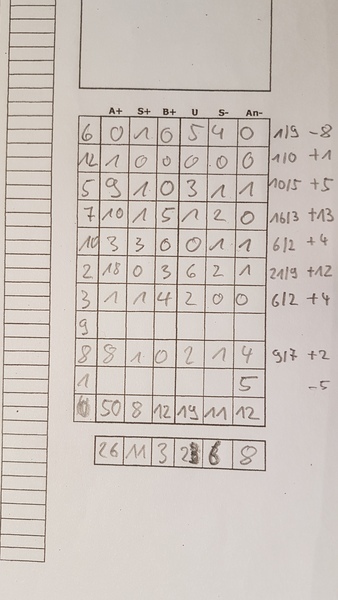 A+ S+ B+ U S- An-
6 0 1 0 5 4 0 1/9 -8
12 1 0 0 0 0 0 1/0 +1
5 9 1 0 3 1 1 10/5 +5
7 10 1 5 1 2 0 16/3 +13
10 3 3 0 0 1 1 6/2 +4
2 18 0 3 6 2 1 21/9 +12
3 1 1 4 2 0 0 6/2 +4
9
8 8 1 0 2 1 4 9/7 +2
1 5 -5
50 8 12 19 11 12
26 11 3 6 8